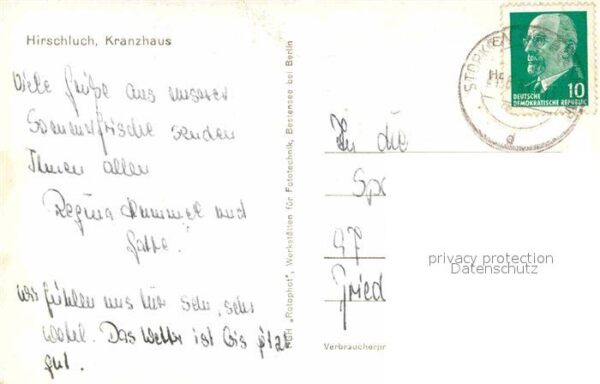 Hirschluch, Kranzhaus
Viele Grüße aus unserer
Sommerfrische senden
Ihnen allen
Regina Kummel und
Gatte.
Wir fühlen uns hier sehr, sehr
wohl. Das Wetter ist bis jetzt
gut.
PGH „Rotophot", Werkstätten für Fototechnik, Bestensee bei Berlin
STORK
d
10
DEUTSCHE
DEMOKRATISCHE REPUBLIK
An die
Sp
Fried
privacy protection
Datenschutz
Verbraucherpr